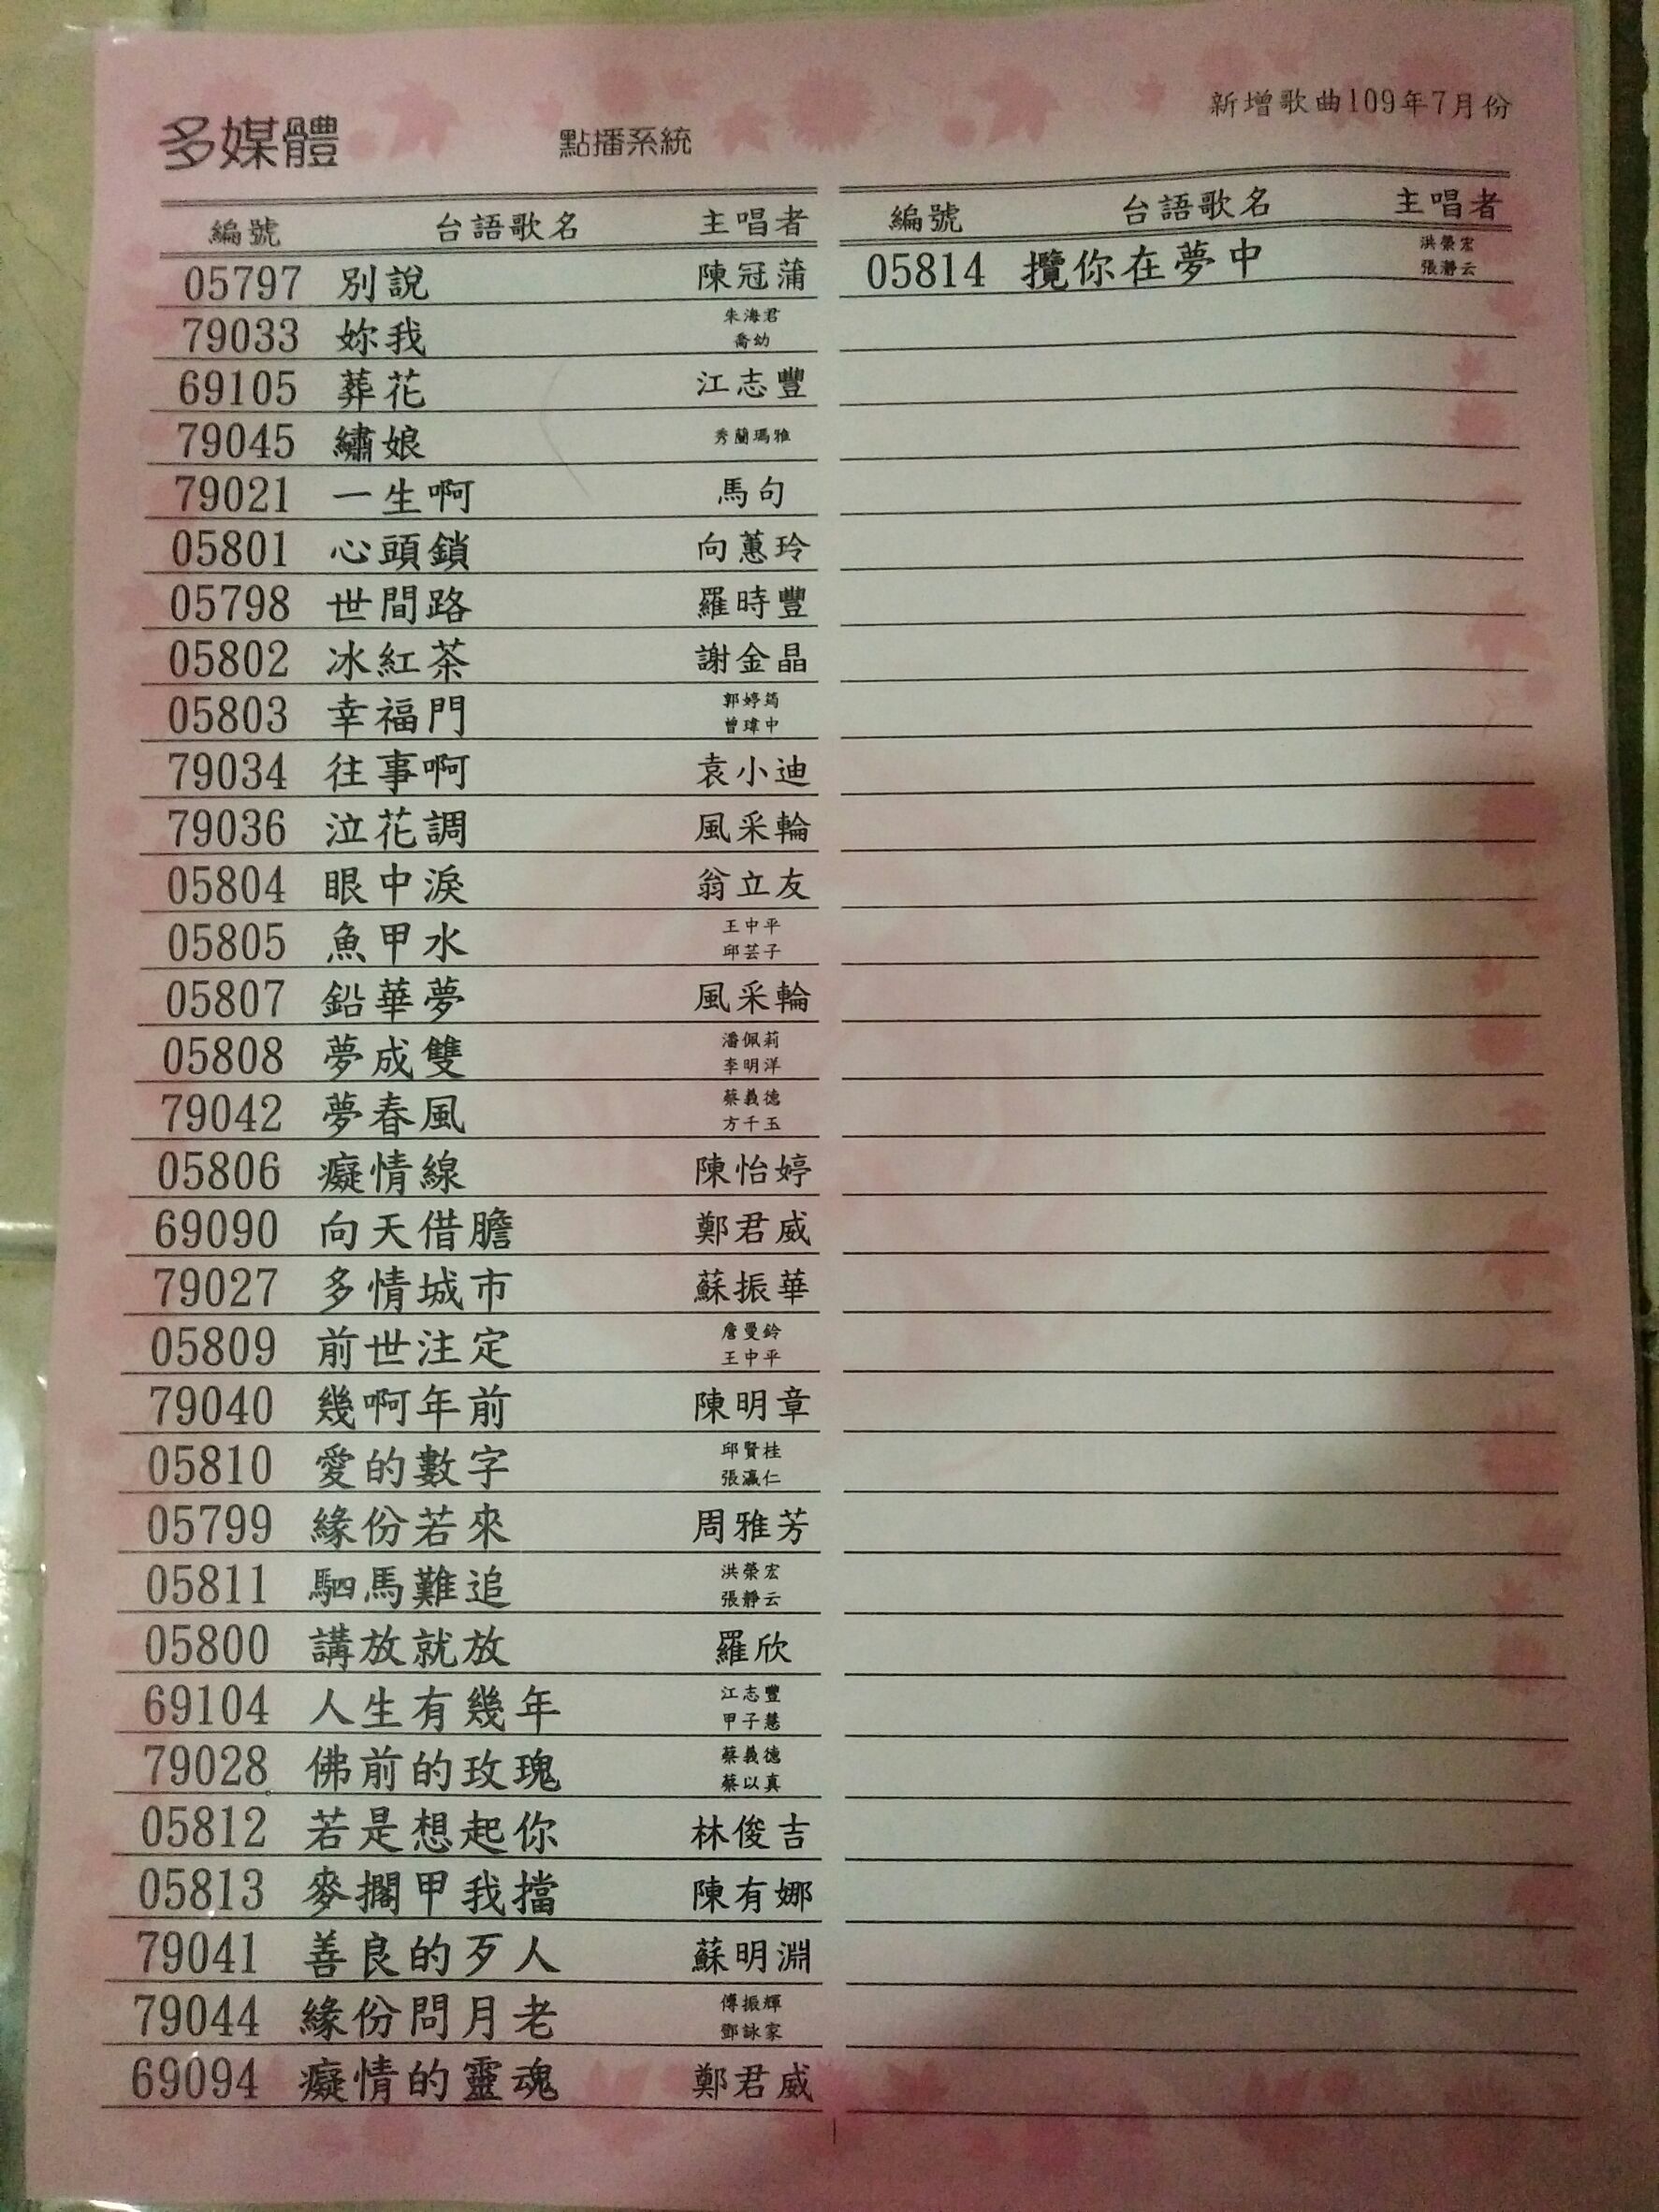 新增歌曲109年7月份
多媒體 點播系統
編號 台語歌名 主唱者
05797 別說 陳冠蒲
79033 妳我 朱海君 喬幼
69105 葬花 江志豐
79045 繡娘 秀蘭瑪雅
79021 一生啊 馬句
05801 心頭鎖 向蕙玲
05798 世間路 羅時豐
05802 冰紅茶 謝金晶
05803 幸福門 郭婷筠 曾瑋中
79034 往事啊 袁小迪
79036 泣花調 風采輪
05804 眼中淚 翁立友
05805 魚甲水 王中平 邱芸子
05807 鉛華夢 風采輪
05808 夢成雙 潘佩莉 李明洋
79042 夢春風 蔡義德 方千玉
05806 癡情線 陳怡婷
69090 向天借膽 鄭君威
79027 多情城市 蘇振華
05809 前世注定 詹曼鈴 王中平
79040 幾啊年前 陳明章
05810 愛的數字 邱賢桂 張瀛仁
05799 緣份若來 周雅芳
05811 駟馬難追 洪榮宏 張靜云
05800 講放就放 羅欣
69104 人生有幾年 江志豐 甲子慧
79028 佛前的玫瑰 蔡義德 蔡以真
05812 若是想起你 林俊吉
05813 麥擱甲我擋 陳有娜
79041 善良的歹人 蘇明淵
79044 緣份問月老 傅振輝 鄧詠家
69094 癡情的靈魂 鄭君威
編號 台語歌名 主唱者
05814 攬你在夢中 洪榮宏 張瀞云